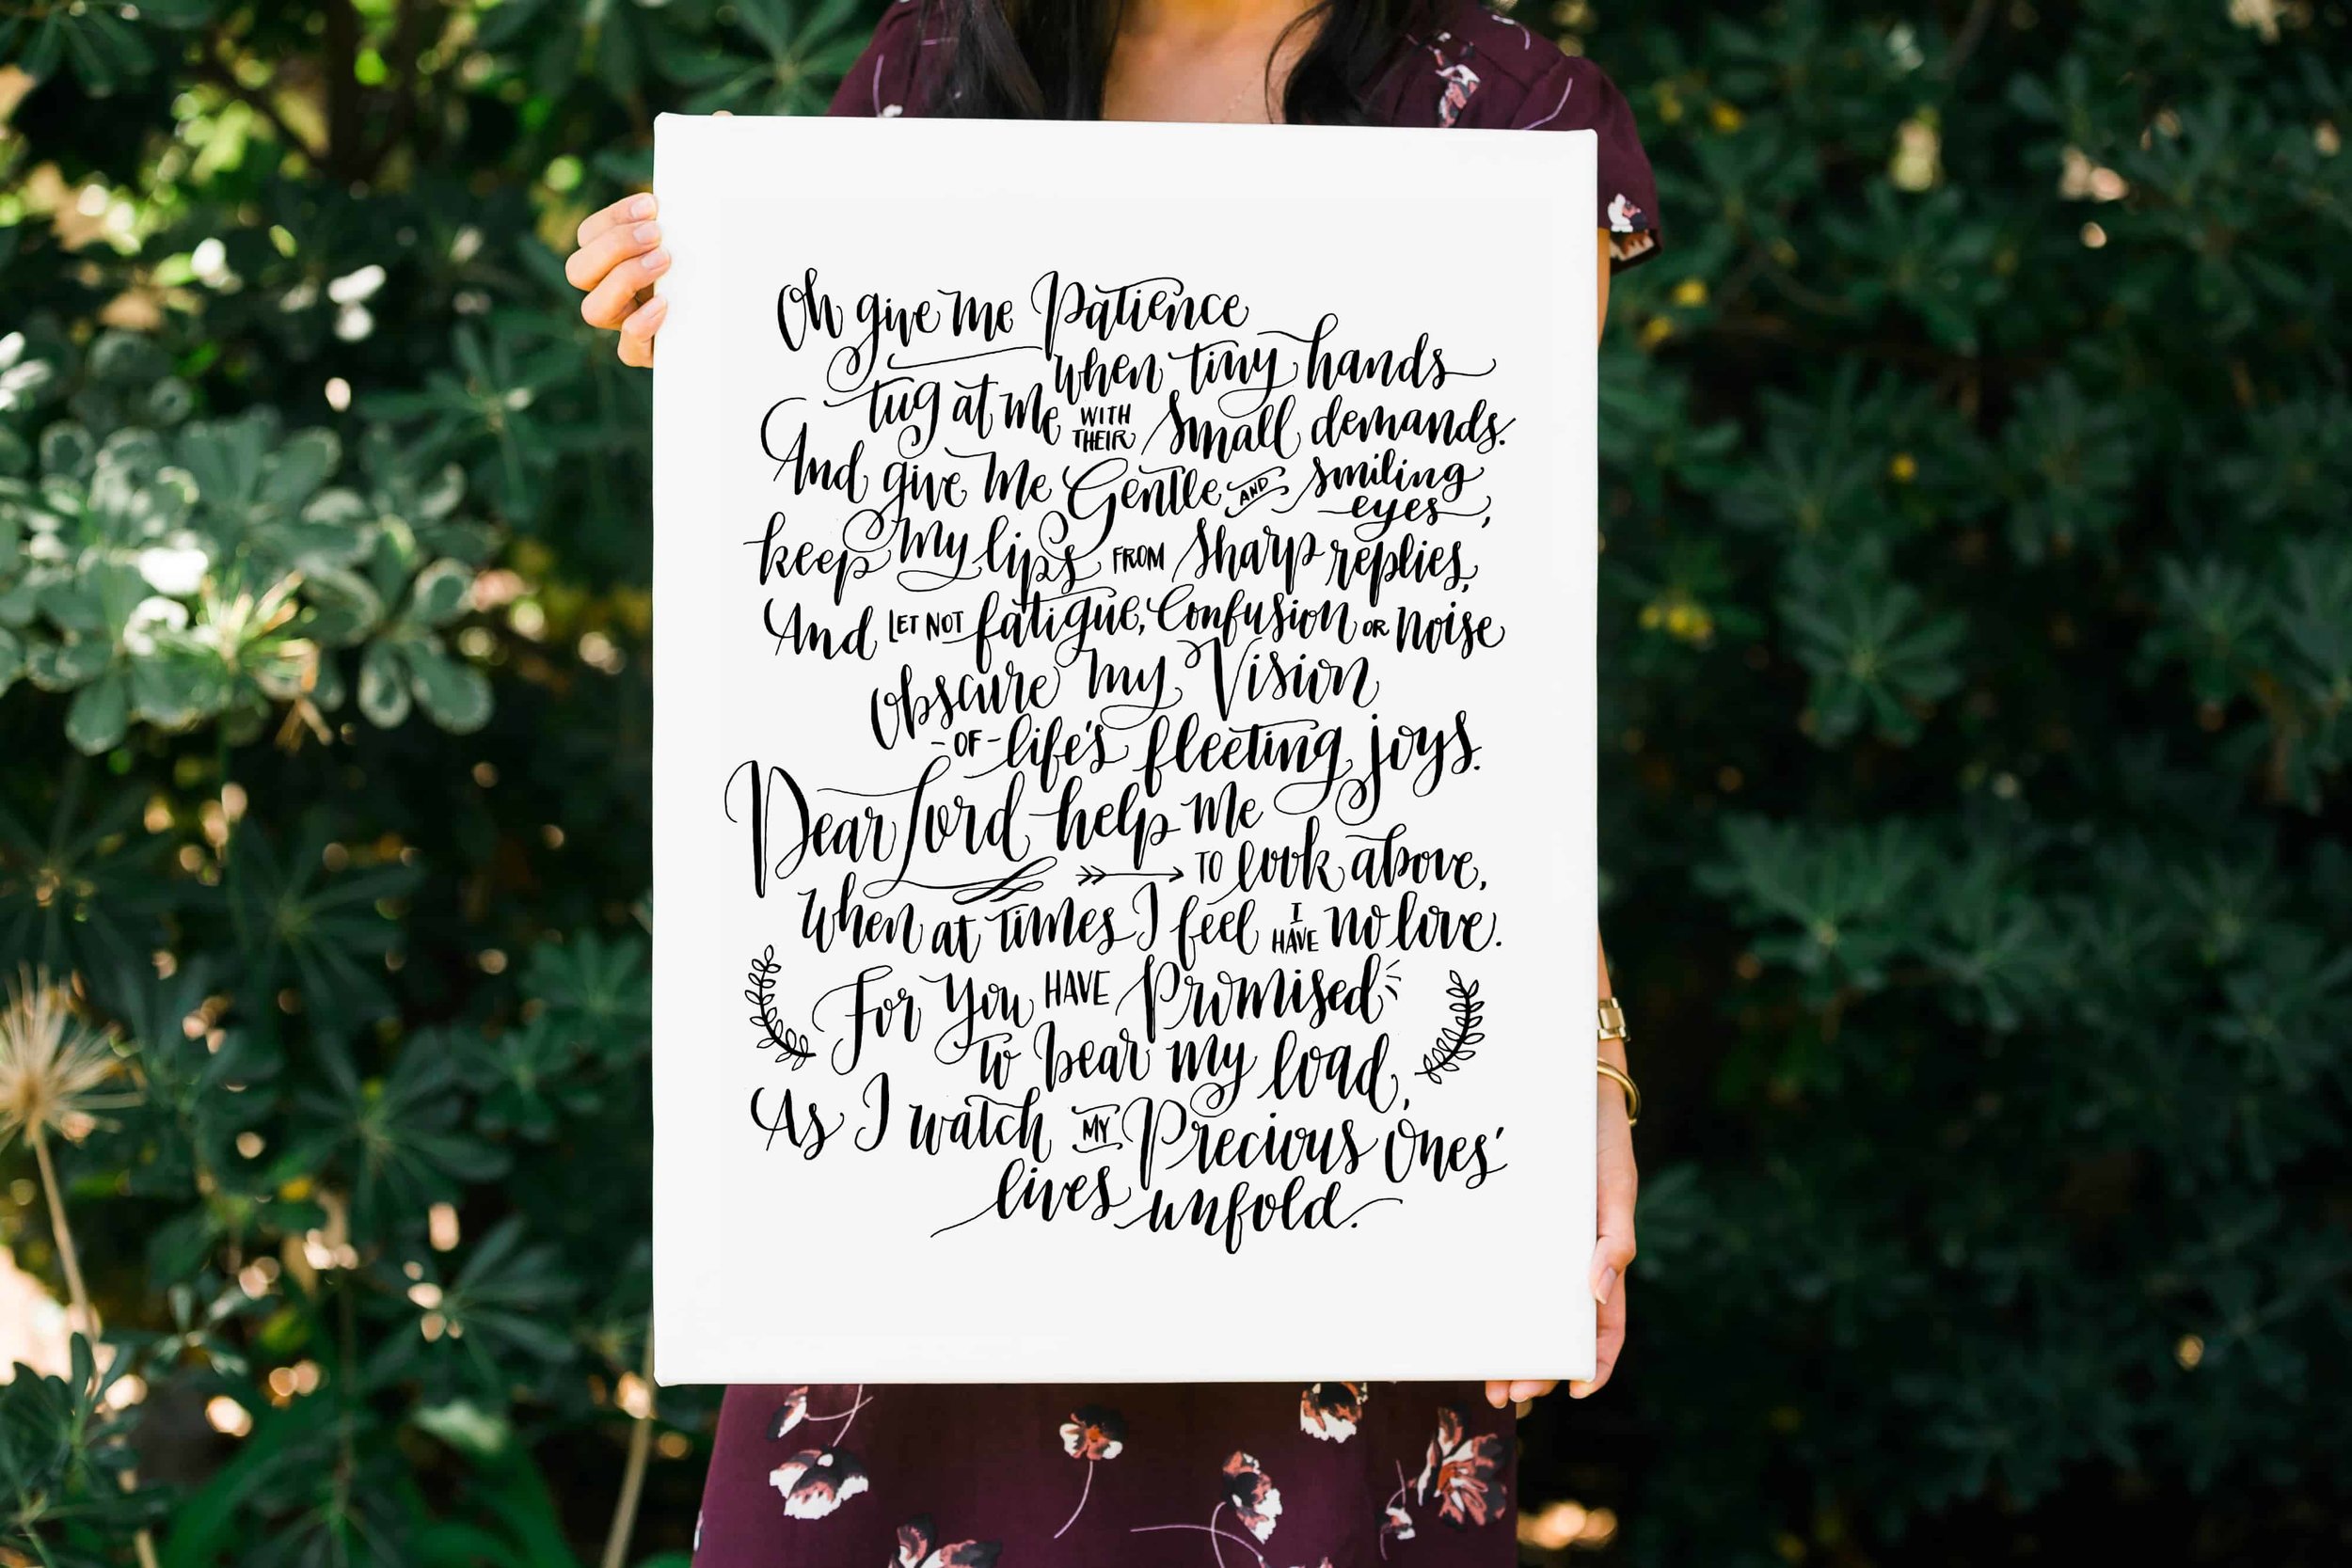 Oh give me Patience
when tiny hands
tug at me WITH THEIR small demands.
And give me Gentle AND smiling eyes,
keep my lips FROM sharp replies,
And LET NOT fatigue, Confusion OR noise
obscure my Vision
-OF- life's fleeting joys.
Dear Lord help me
TO look above,
When at times I feel I HAVE no love.
For You HAVE Promised
to bear my load,
As I watch MY Precious Ones'
lives unfold.